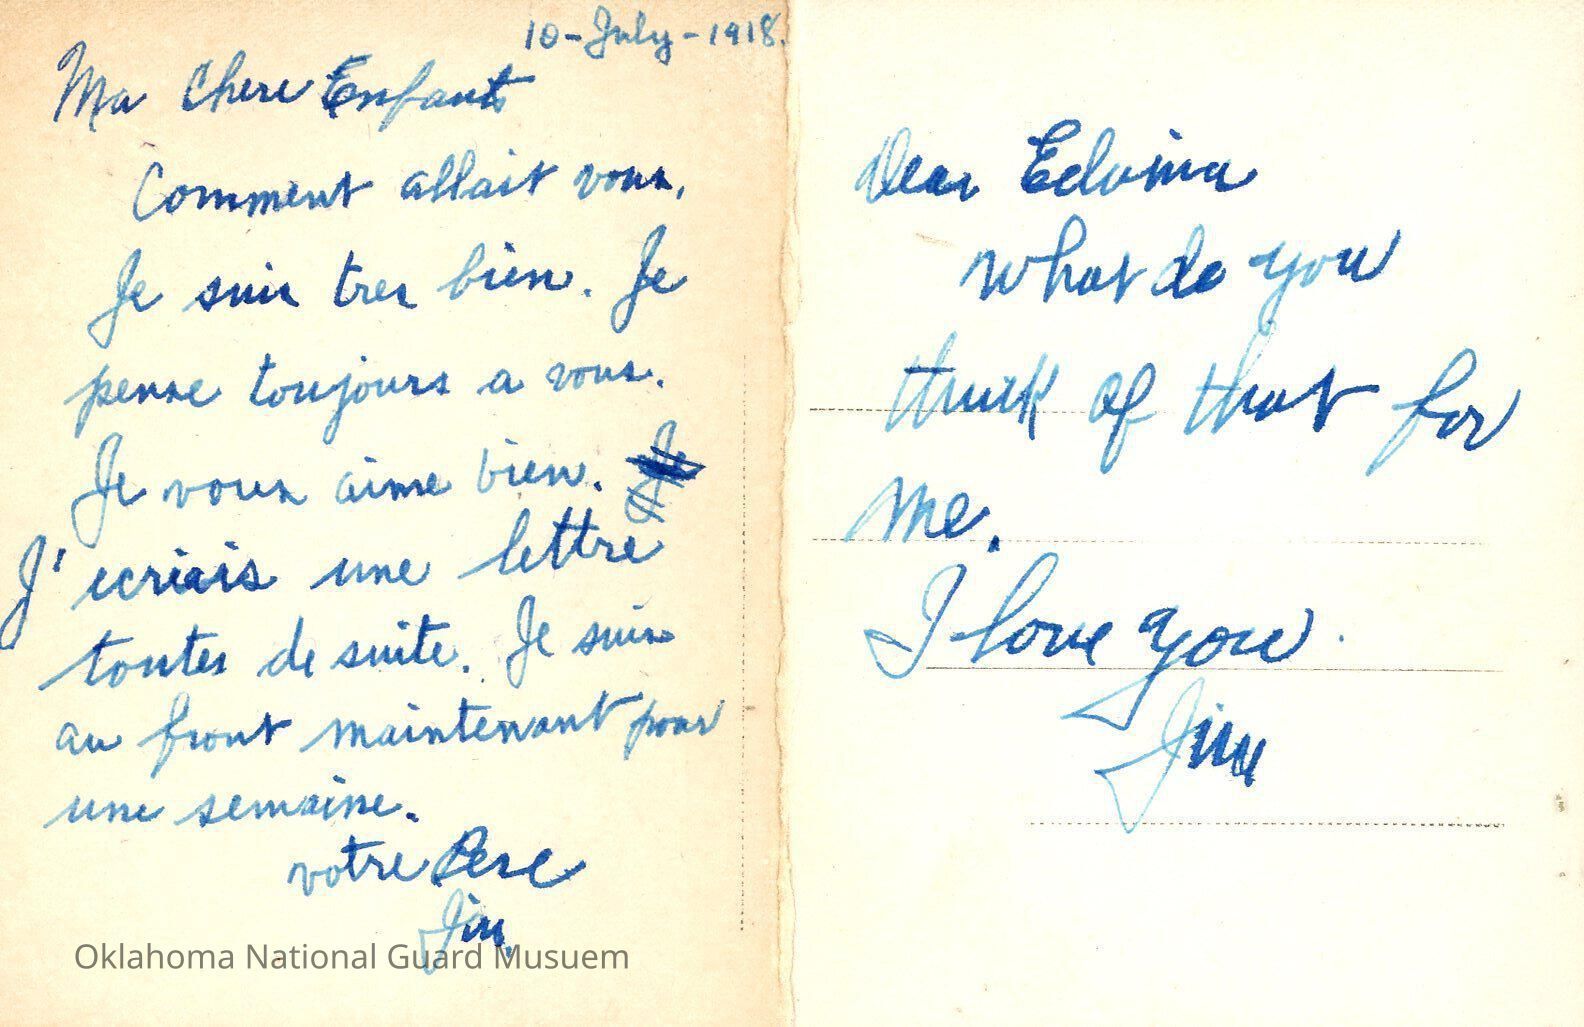 10-July-1918.
Ma Chere Enfants
Comment allait vous.
Je suis tres bien. Je
pense toujours a vous.
Je vous aime bien. Je
J'ecriais une lettre
toutes de suite. Je suis
au front maintenant pour
une semaine.
votre Pere
Jim.
Dear Edwina
What do you
think of that for
me.
I love you.
Jim
Oklahoma National Guard Musuem